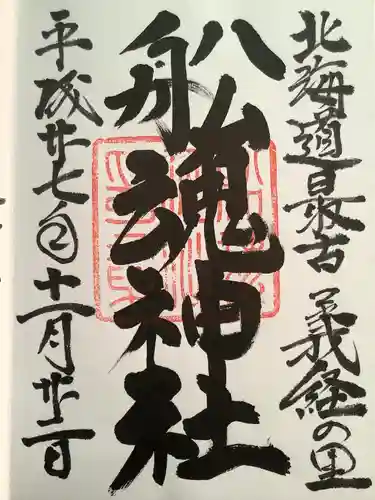 北海道最古 義経の里
船魂神社
平成廿七年十一月廿二日